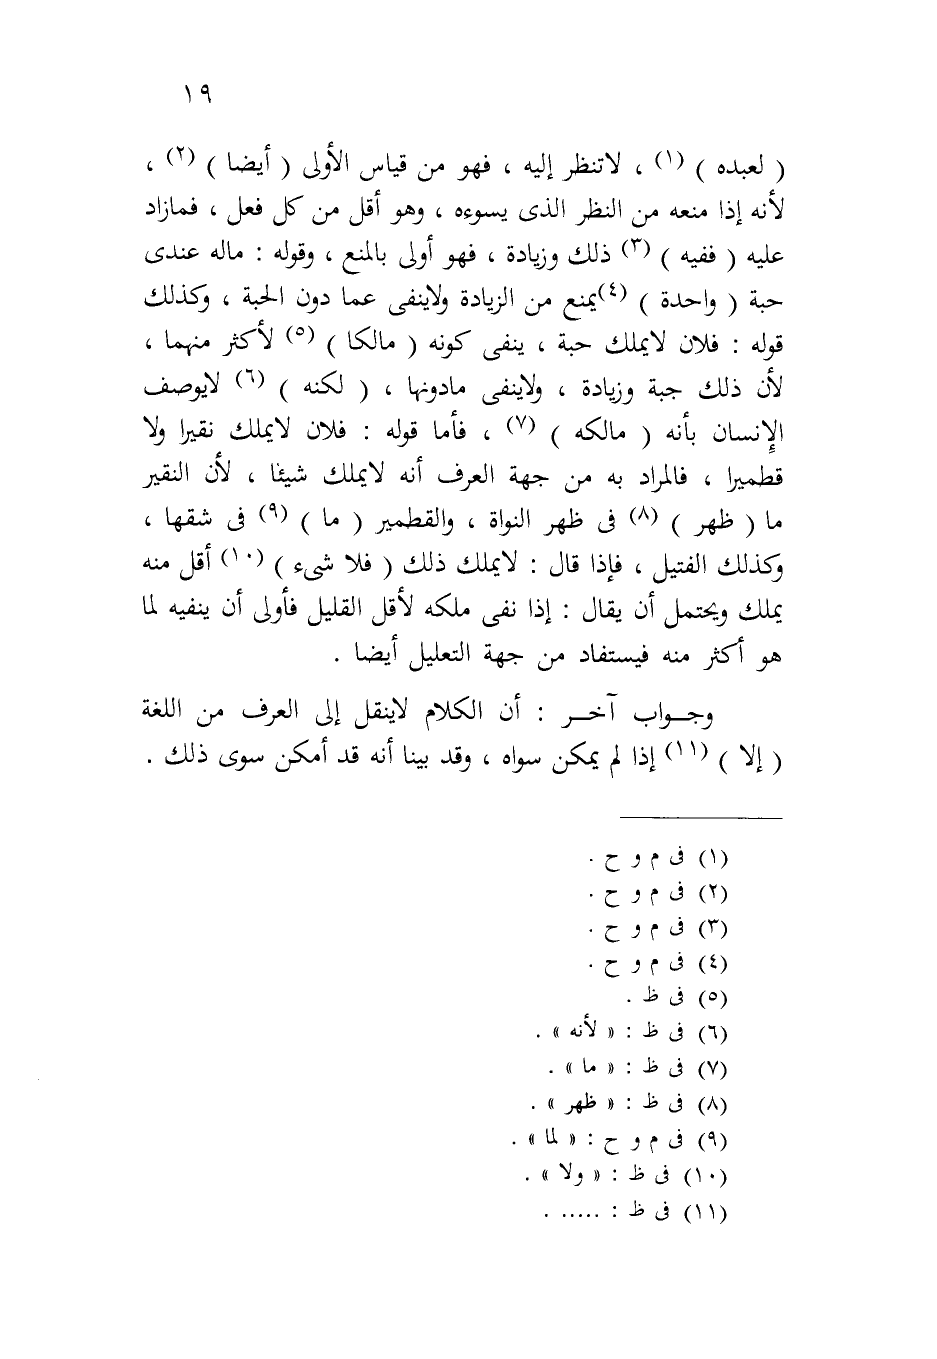 ١٩
( لعبده ) (١) ، لاتنظر إليه ، فهو من قياس الأولى ( أيضا ) (٢) ،
لأنه إذا منعه من النظر الذى يسوءه ، وهو أقل من كل فعل ، فمازاد
عليه ( ففيه ) (٣) ذلك وزيادة ، فهو أولى بالمنع ، وقوله : ماله عندى
حبة ( واحدة ) (٤)يمنع من الزيادة ولاينفى عما دون الحبة ، وكذلك
قوله : فلان لايملك حبة ، ينفى كونه ( مالكا ) (٥) لأكثر منهما ،
لأن ذلك حبة وزيادة ، ولاينفى مادونها ، ( لكنه ) (٦) لايوصف
الإنسان بأنه ( مالكه ) (٧) ، فأما قوله : فلان لايملك نقيرا ولا
قطميرا ، فالمراد به من جهة العرف أنه لايملك شيئا ، لأن النقير
ما ( ظهر ) (٨) فى ظهر النواة ، والقطمير ( ما ) (٩) فى شقها ،
وكذلك الفتيل ، فإذا قال : لايملك ذلك ( فلا شىء ) (١٠) أقل منه
يملك ويحتمل أن يقال : إذا نفى ملكه لأقل القليل فأولى أن ينفيه لما
هو أكثر منه فيستفاد من جهة التعليل أيضا .
وجــواب آخــر : أن الكلام لاينقل إلى العرف من اللغة
( إلا ) (١١) إذا لم يمكن سواه ، وقد بينا أنه قد أمكن سوى ذلك .
(١) فى م و ح .
(٢) فى م و ح .
(٣) فى م و ح .
(٤) فى م و ح .
(٥) فى ظ .
(٦) فى ظ : « لأنه » .
(٧) فى ظ : « ما » .
(٨) فى ظ : « ظهر » .
(٩) فى م و ح : « لما » .
(١٠) فى ظ : « ولا » .
(١١) فى ظ : ..... .